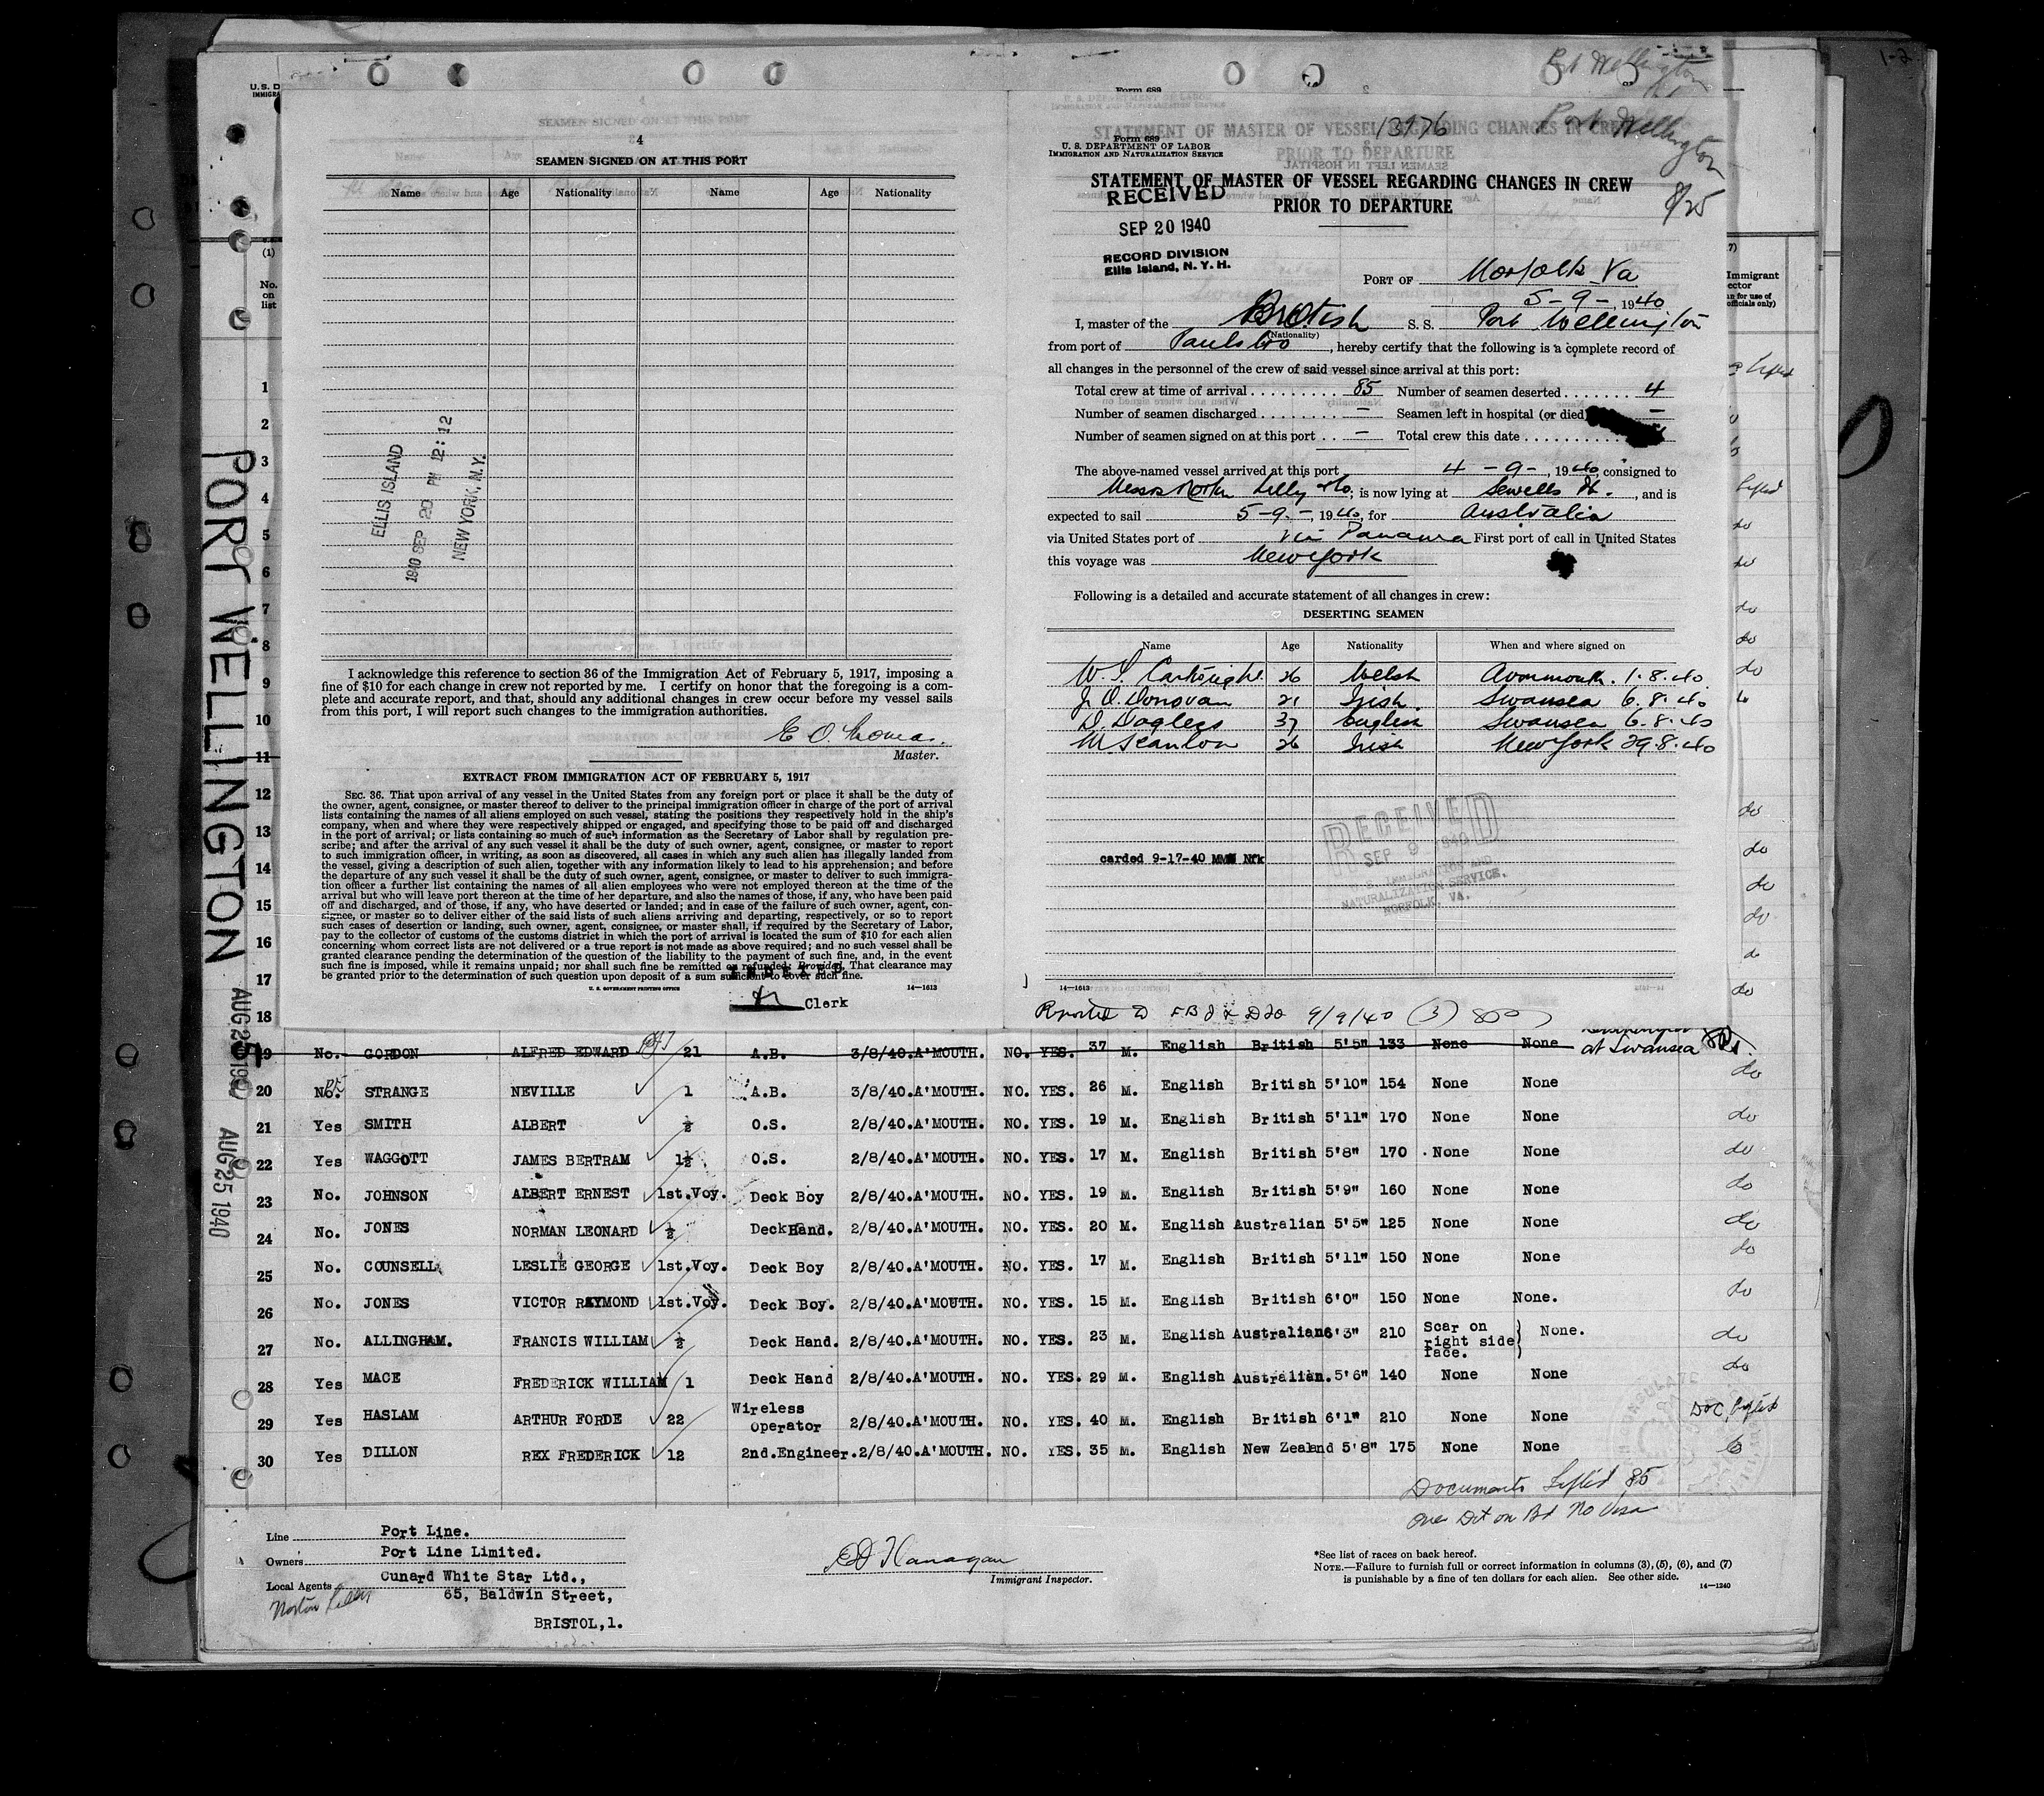 4
SEAMEN SIGNED ON AT THIS PORT
Name Age Nationality Name Age Nationality
ELLIS ISLAND
1940 SEP 20 PM 12:12
NEW YORK, N.Y.
I acknowledge this reference to section 36 of the Immigration Act of February 5, 1917, imposing a
fine of $10 for each change in crew not reported by me. I certify on honor that the foregoing is a com-
plete and accurate report, and that, should any additional changes in crew occur before my vessel sails
from this port, I will report such changes to the immigration authorities.
Master.
EXTRACT FROM IMMIGRATION ACT OF FEBRUARY 5, 1917
SEC. 36. That upon arrival of any vessel in the United States from any foreign port or place it shall be the duty of
the owner, agent, consignee, or master thereof to deliver to the principal immigration officer in charge of the port of arrival
lists containing the names of all aliens employed on such vessel, stating the positions they respectively hold in the ship's
company, when and where they were respectively shipped or engaged, and specifying those to be paid off and discharged
in the port of arrival; or lists containing so much of such information as the Secretary of Labor shall by regulation pre-
scribe; and after the arrival of any such vessel it shall be the duty of such owner, agent, consignee, or master to report
to such immigration officer, in writing, as soon as discovered, all cases in which any such alien has illegally landed from
the vessel, giving a description of such alien, together with any information likely to lead to his apprehension; and before
the departure of any such vessel it shall be the duty of such owner, agent, consignee, or master to deliver to such immigra-
tion officer a further list containing the names of all alien employees who were not employed thereon at the time of the
arrival but who will leave port thereon at the time of her departure, and also the names of those, if any, who have been paid
off and discharged, and of those, if any, who have deserted or landed; and in case of the failure of such owner, agent, con-
signee, or master so to deliver either of the said lists of such aliens arriving and departing, respectively, or so to report
such cases of desertion or landing, such owner, agent, consignee, or master shall, if required by the Secretary of Labor,
pay to the collector of customs of the customs district in which the port of arrival is located the sum of $10 for each alien
concerning whom correct lists are not delivered or a true report is not made as above required; and no such vessel shall be
granted clearance pending the determination of the question of the liability to the payment of such fine, and, in the event
such fine is imposed, while it remains unpaid; nor shall such fine be remitted or refunded: Provided, That clearance may
be granted prior to the determination of such question upon deposit of a sum sufficient to cover such fine.
U. S. GOVERNMENT PRINTING OFFICE 14—1613
Clerk
13976
Port Wellington
8/25
Form 689
U. S. DEPARTMENT OF LABOR
IMMIGRATION AND NATURALIZATION SERVICE
STATEMENT OF MASTER OF VESSEL REGARDING CHANGES IN CREW
PRIOR TO DEPARTURE
RECEIVED
SEP 20 1940
RECORD DIVISION
Ellis Island, N. Y. H.
PORT OF Norfolk Va
5-9-, 1940
I, master of the British S. S. Port Wellington
(Nationality)
from port of Paulsbro, hereby certify that the following is a complete record of
all changes in the personnel of the crew of said vessel since arrival at this port:
Total crew at time of arrival 85 Number of seamen deserted 4
Number of seamen discharged — Seamen left in hospital (or died) —
Number of seamen signed on at this port — Total crew this date
The above-named vessel arrived at this port 4-9-, 1940, consigned to
Messrs Norton Lilly & Co; is now lying at Sewells Pt., and is
expected to sail 5-9-, 1940, for Australia
via United States port of via Panama First port of call in United States
this voyage was New York
Following is a detailed and accurate statement of all changes in crew:
DESERTING SEAMEN
Name Age Nationality When and where signed on
26 Welsh Avonmouth. 1.8.40
J. O. Donovan 21 Irish Swansea 6.8.40
37 English Swansea 6.8.40
M Scanlon 26 Irish New York 29.8.40
carded 9-17-40 Nfk
RECEIVED
SEP 9 1940
IMMIGRATION AND
NATURALIZATION SERVICE.
NORFOLK, VA.
14—1613
9/9/40 (3)
PORT WELLINGTON
AUG 25 1940
AUG 25 1940
(1)
No. on list
1
2
3
4
5
6
7
8
9
10
11
12
13
14
15
16
17
18
19 No. GORDON ALFRED EDWARD 21 A.B. 3/8/40. A'MOUTH. NO. YES. 37 M. English British 5'5" 133 None None at Swansea
20 No. STRANGE NEVILLE 1 A.B. 3/8/40. A'MOUTH. NO. YES. 26 M. English British 5'10" 154 None None do
21 Yes SMITH ALBERT ½ O.S. 2/8/40. A'MOUTH. NO. YES. 19 M. English British 5'11" 170 None None do
22 Yes WAGGOTT JAMES BERTRAM 1½ O.S. 2/8/40. A'MOUTH. NO. YES. 17 M. English British 5'8" 170 None None do
23 No. JOHNSON ALBERT ERNEST 1st.Voy. Deck Boy 2/8/40. A'MOUTH. NO. YES. 19 M. English British 5'9" 160 None None do
24 No. JONES NORMAN LEONARD ½ Deck Hand. 2/8/40. A'MOUTH. NO. YES. 20 M. English Australian 5'5" 125 None None do
25 No. COUNSELL LESLIE GEORGE 1st.Voy. Deck Boy 2/8/40. A'MOUTH. NO. YES. 17 M. English British 5'11" 150 None None do
26 No. JONES VICTOR RAYMOND 1st.Voy. Deck Boy. 2/8/40. A'MOUTH. NO. YES. 15 M. English British 6'0" 150 None None. do
27 No. ALLINGHAM. FRANCIS WILLIAM ½ Deck Hand. 2/8/40. A'MOUTH. NO. YES. 23 M. English Australian 6'3" 210 Scar on right side face. None. do
28 Yes MACE FREDERICK WILLIAM 1 Deck Hand 2/8/40. A'MOUTH. NO. YES. 29 M. English Australian. 5'6" 140 None None do
29 Yes HASLAM ARTHUR FORDE 22 Wireless Operator 2/8/40. A'MOUTH. NO. YES. 40 M. English British 6'1" 210 None None
30 Yes DILLON REX FREDERICK 12 2nd.Engineer. 2/8/40. A'MOUTH. NO. YES. 35 M. English New Zealand 5'8" 175 None None
Documents Lifted 85
Line Port Line.
Owners Port Line Limited.
Local Agents Cunard White Star Ltd.,
65, Baldwin Street,
BRISTOL,1.
Norton Lilly
Immigrant Inspector.
*See list of races on back hereof.
NOTE.—Failure to furnish full or correct information in columns (3), (5), (6), and (7)
is punishable by a fine of ten dollars for each alien. See other side.
14—1240